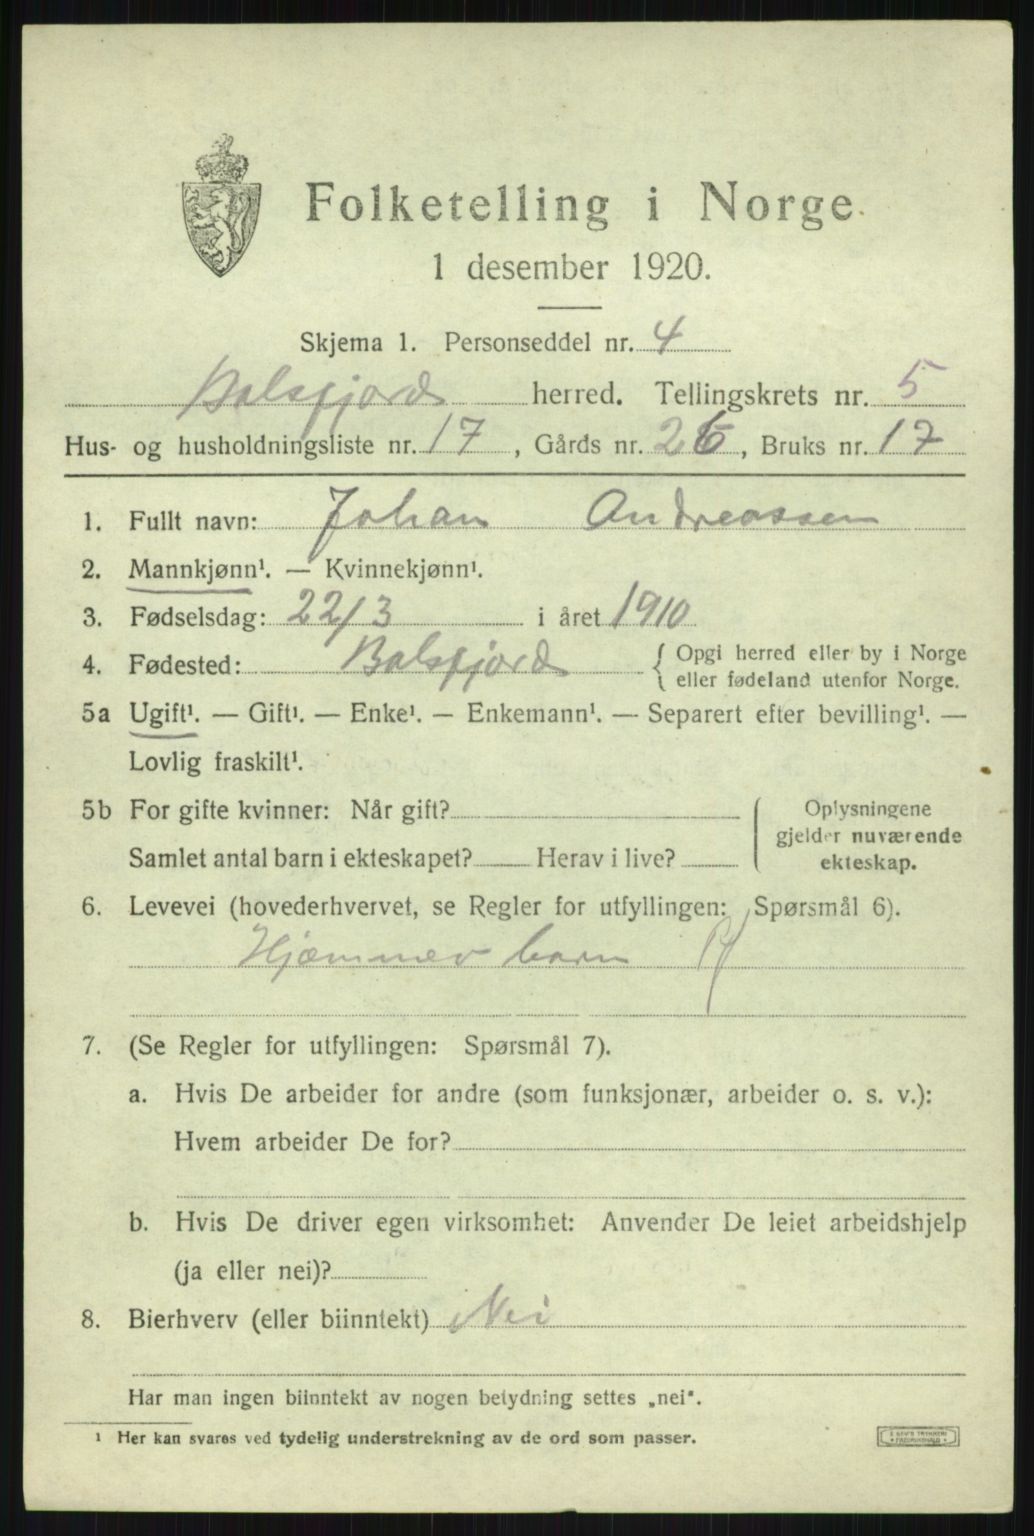 Folketelling i Norge
1 desember 1920.
Skjema 1. Personseddel nr. 4
Balsfjord herred. Tellingskrets nr. 5
Hus- og husholdningsliste nr. 17, Gårds nr. 26, Bruks nr. 17
1. Fullt navn: Johan Andreassen
2. Mannkjønn¹. — Kvinnekjønn¹.
3. Fødselsdag: 22/3 i året 1910
4. Fødested: Balsfjord { Opgi herred eller by i Norge
eller fødeland utenfor Norge.
5a Ugift¹. — Gift¹. — Enke¹. — Enkemann¹. — Separert efter bevilling¹. —
Lovlig fraskilt¹.
5b For gifte kvinner: Når gift?
Samlet antal barn i ekteskapet? Herav i live?
Oplysningene
gjelder nuværende
ekteskap.
6. Levevei (hovederhvervet, se Regler for utfyllingen: Spørsmål 6).
Hjæmmev barn
7. (Se Regler for utfyllingen: Spørsmål 7).
a. Hvis De arbeider for andre (som funksjonær, arbeider o. s. v.):
Hvem arbeider De for?
b. Hvis De driver egen virksomhet: Anvender De leiet arbeidshjelp
(ja eller nei)?
8. Bierhverv (eller biinntekt) Nei
Har man ingen biinntekt av nogen betydning settes „nei".
¹ Her kan svares ved tydelig understrekning av de ord som passer.